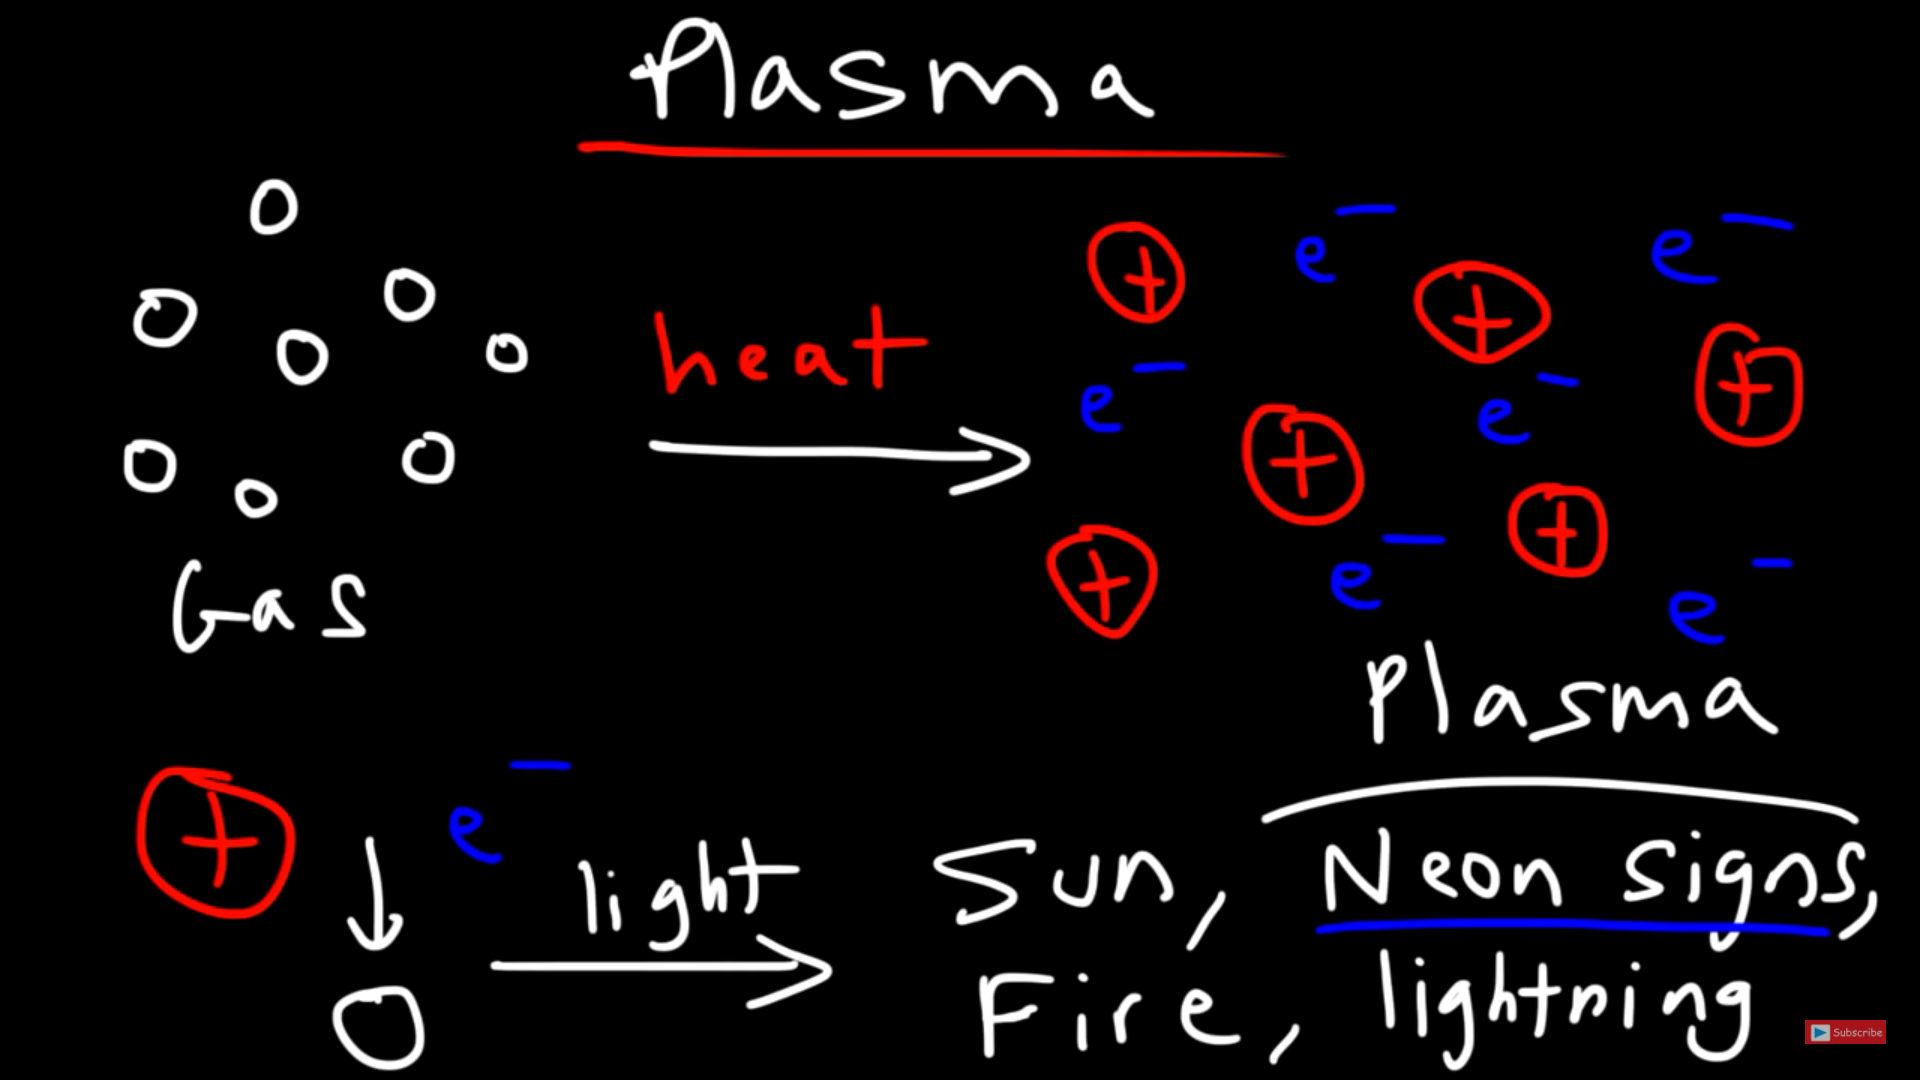 Plasma
e⁻ e⁻
+ +
heat
+
e⁻ e⁻
+
+
+ e⁻ e⁻
Gas
Plasma
+ e⁻
light
Sun, Neon signs,
Fire, lightning
Subscribe